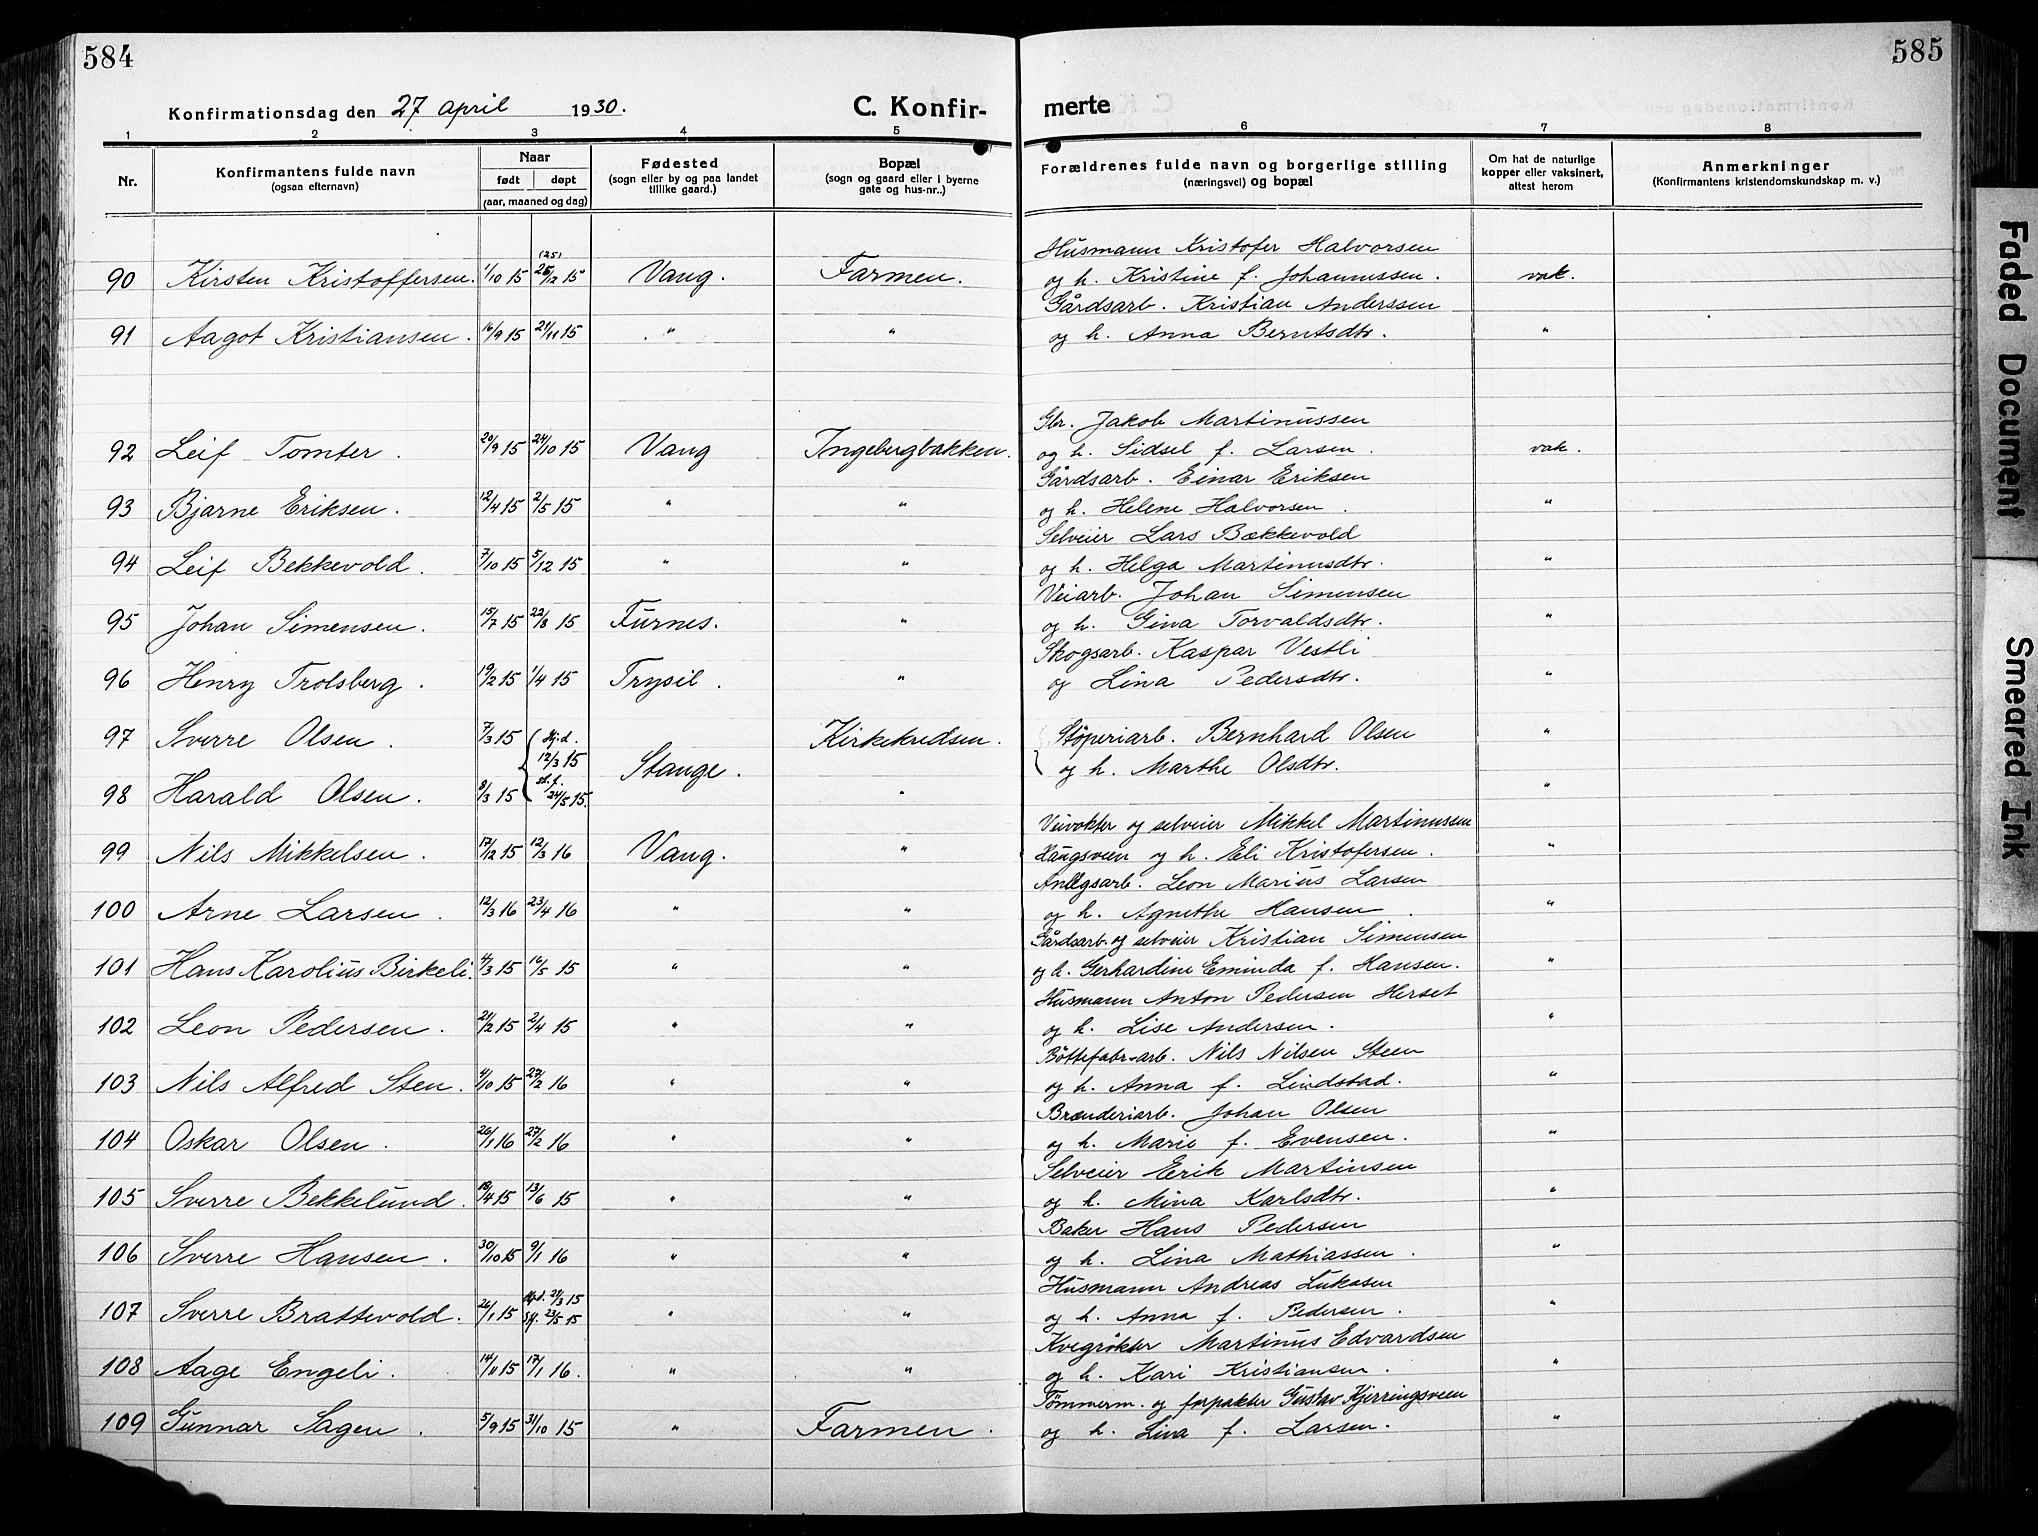 584
585
Konfirmationsdag den 27 april 1930.
C. Konfir-
merte
1 2 3 4 5 6 7 8
Nr.
Konfirmantens fulde navn
(ogsaa efternavn)
Naar
født døpt
(aar, maaned og dag)
Fødested
(sogn eller by og paa landet
tillike gaard.)
Bopæl
(sogn og gaard eller i byerne
gate og hus-nr..)
Forældrenes fulde navn og borgerlige stilling
(næringsvei) og bopæl
Om hat de naturlige
kopper eller vaksinert,
attest herom
Anmerkninger
(Konfirmantens kristendomskundskap m. v.)
Husmann Kristofer Halvorsen
(25)
90 Kirsten Kristoffersen. 1/10 15 26/12 15 Vang. Farmen. og h. Kristine f. Johannessen. vak.
Gårdsarb. Kristian Anderssen
91 Aagot Kristiansen. 16/9 15 21/11 15 " " og h. Anna Berntsdtr. "
Gbr. Jakob Martinussen
92 Leif Tomter. 20/9 15 24/10 15 Vang Ingebergbakken. og h. Sidsel f. Larsen. vak.
Gårdsarb. Einar Eriksen
93 Bjarne Eriksen. 12/4 15 2/5 15 " " og h. Helene Halvorsen. "
Selveier Lars Bækkevold
94 Leif Bekkevold. 7/10 15 5/12 15 " " og h. Helga Martinusdtr. "
Veiarb. Johan Simensen
95 Johan Simensen. 15/7 15 22/8 15 Furnes. " og h. Gina Torvaldsdtr. "
Skogsarb. Kaspar Vestli
96 Henry Trolsberg. 19/2 15 1/4 15 Trysil. " og Lina Pedersdtr. "
97 Sverre Olsen. 7/3 15 Hj.d. 12/3 15 Stange. Kirkekredsen. Støperiarb. Bernhard Olsen "
og h. Marthe Olsdtr.
98 Harald Olsen. 8/3 15 st.f. 24/5 15 " "
Veivokter og selveier Mikkel Martinussen
99 Nils Mikkelsen. 17/12 15 12/3 16 Vang. " Haugsveen og h. Eli Kristofersen. "
Anlegsarb. Leon Marius Larsen
100 Arne Larsen. 12/3 16 23/4 16 " " og h. Agnethe Hansen. "
Gårdsarb. og selveier Kristian Simensen
101 Hans Karolius Birkeli. 4/3 15 16/5 15 " " og h. Gerhardine Eminda f. Hansen. "
Husmann Anton Pedersen Herset
102 Leon Pedersen. 21/2 15 2/4 15 " " og h. Lise Andersen. "
Bøttefabr-arb. Nils Nilsen Steen
103 Nils Alfred Sten. 4/10 15 27/2 16 " " og h. Anna f. Lindstad. "
Brænderiarb. Johan Olsen
104 Oskar Olsen. 26/1 16 27/2 16 " " og h. Marie f. Evensen. "
Selveier Erik Martinsen
105 Sverre Bekkelund. 18/4 15 13/6 15 " " og h. Mina Karlsdtr. "
Baker Hans Pedersen
106 Sverre Hansen. 30/10 15 9/1 16 " " og h. Lina Mathiassen. "
Husmann Andreas Lukasen
107 Sverre Brattevold. 26/1 15 Hj.d. 21/3 15 Stf. 23/5 15 " " og h. Anna f. Pedersen. "
Kvegrøkter Martinus Edvardsen
108 Aage Engeli. 14/11 15 17/1 16. " " og h. Kari Kristiansen. "
Tømmerm. og forpakter Gustav Kjerringsveen
109 Gunnar Sagen. 5/9 15 31/10 15 " Farmen. og h. Lina f. Larsen. "
Faded Document
Smeared Ink